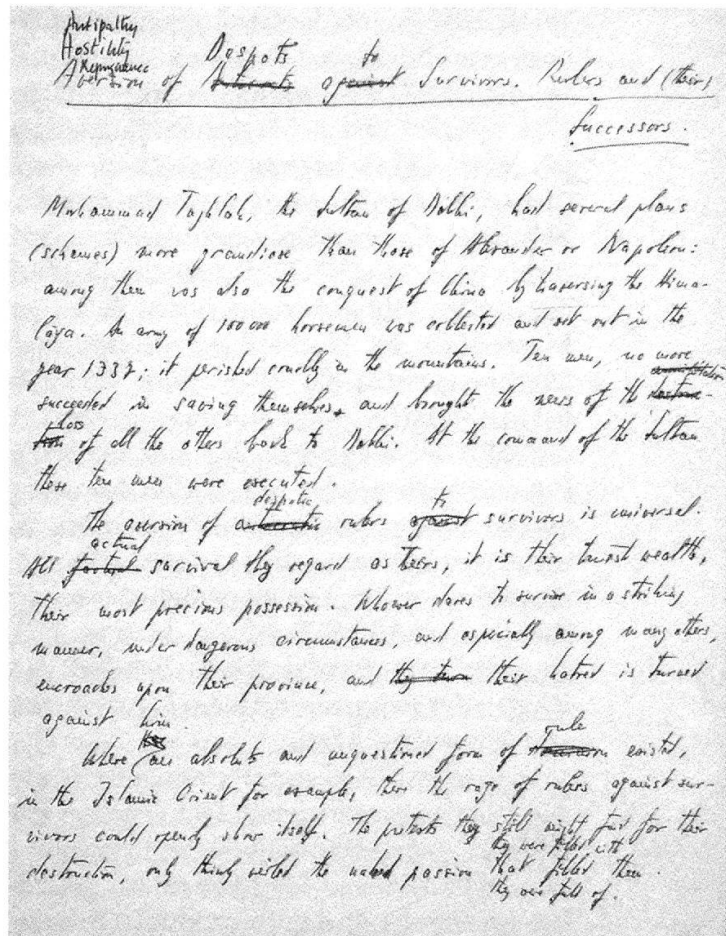 Antipathy
Hostility
Repugnance Despots to
Aversion of against Survivors. Rulers and (their)
Successors.
Mohammad Taghlak, the Sultan of Delhi, had several plans
(schemes) more grandiose than those of Alexander or Napoleon:
among them was also the conquest of China by traversing the Hima-
laya. An army of 100 000 horsemen was collected and set out in the
year 1337; it perished cruelly in the mountains. Ten men, no more
succeeded in saving themselves, and brought the news of the destruc-
loss
tion of all the others back to Delhi. At the command of the Sultan
these ten men were executed.
despotic to
The aversion of autocratic rulers against survivors is universal.
actual
All factual survival they regard as theirs, it is their truest wealth,
their most precious possession. Whoever dares to survive in a striking
manner, under dangerous circumstances, and especially among many others,
encroaches upon their province, and they turn their hatred is turned
against him.
rule
Where an absolute and unquestioned form of existed,
in the Islamic Orient for example, there the rage of rulers against sur-
vivors could openly show itself. The pretexts they still might find for their
they were filled with
destruction, only thinly veiled the naked passion that filled them.
they were full of.